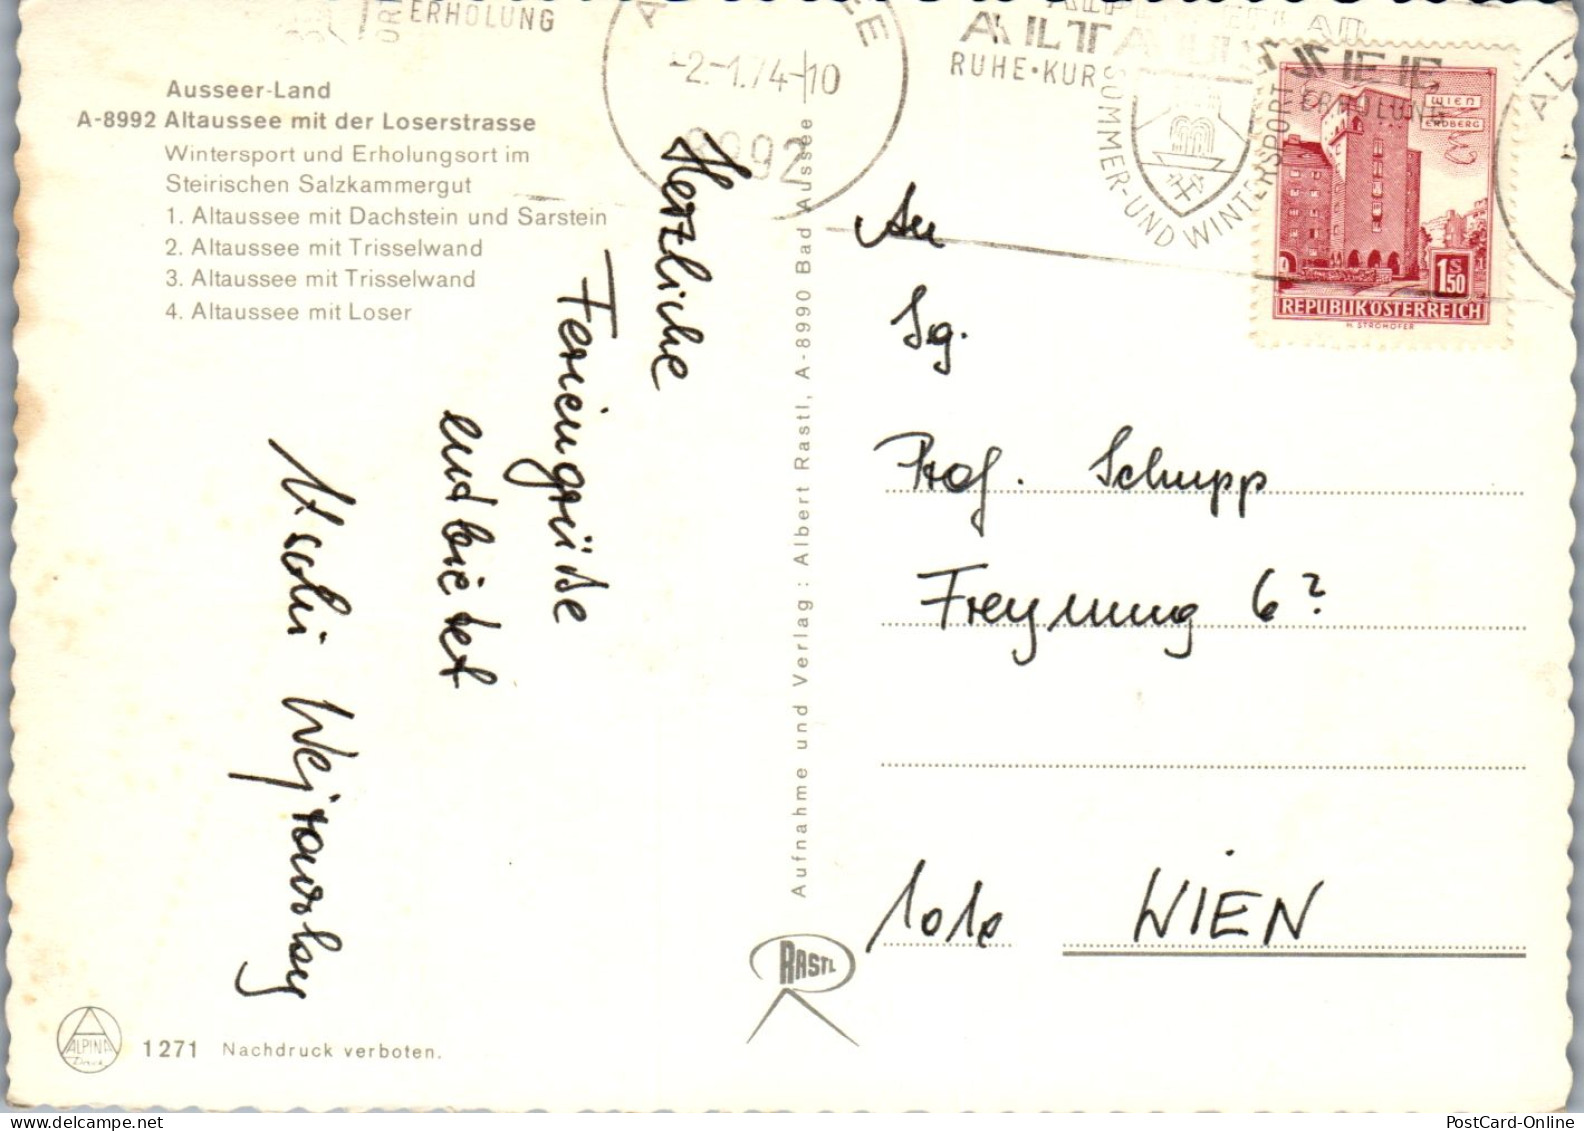 ERHOLUNG
-2.-1.74-10
8992
ALTAUSSEE
RUHE·KUR
ERHOLUNG
SOMMER-UND WINTERSPORT
WIEN
ERDBERG
1 S 50
REPUBLIK ÖSTERREICH
H. STROHOFER
Ausseer-Land
A-8992 Altaussee mit der Loserstrasse
Wintersport und Erholungsort im
Steirischen Salzkammergut
1. Altaussee mit Dachstein und Sarstein
2. Altaussee mit Trisselwand
3. Altaussee mit Trisselwand
4. Altaussee mit Loser
Herzliche
Feriengrüße
entbietet
Uschi
Aufnahme und Verlag : Albert Rastl, A-8990 Bad Aussee
An
Sg.
Prof. Schupp
Freyung 6?
1010 WIEN
RASTL
ALPINA
Druck
1271 Nachdruck verboten.
PostCard-Online